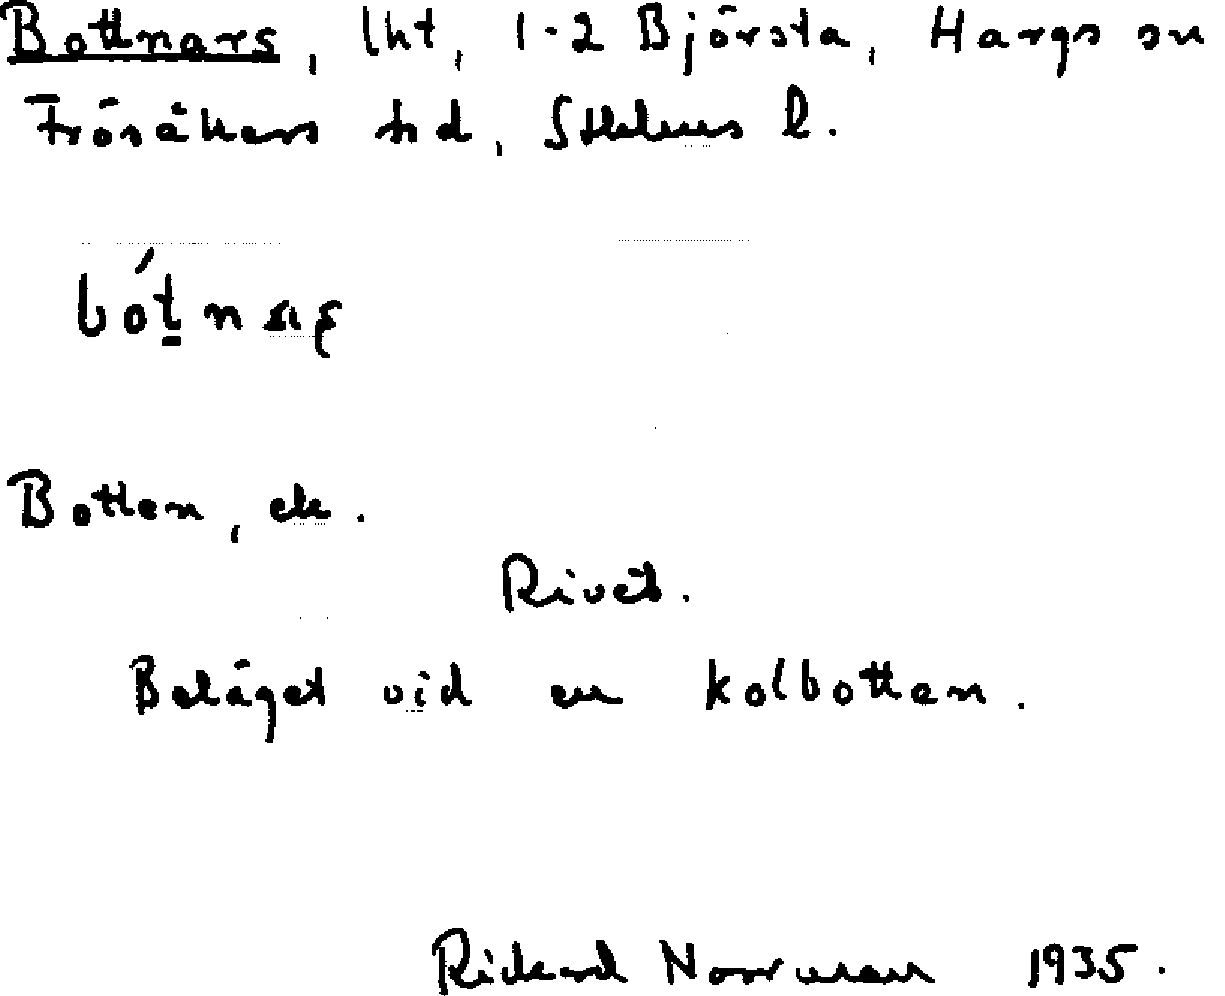 Bottnars, lht, 1-2 Björsta, Hargs sn
Frösåkers hd, Sthlms l.
Botten, ek.
Rivet.
Beläget vid en kolbotten.
Rickard Norrman 1935.